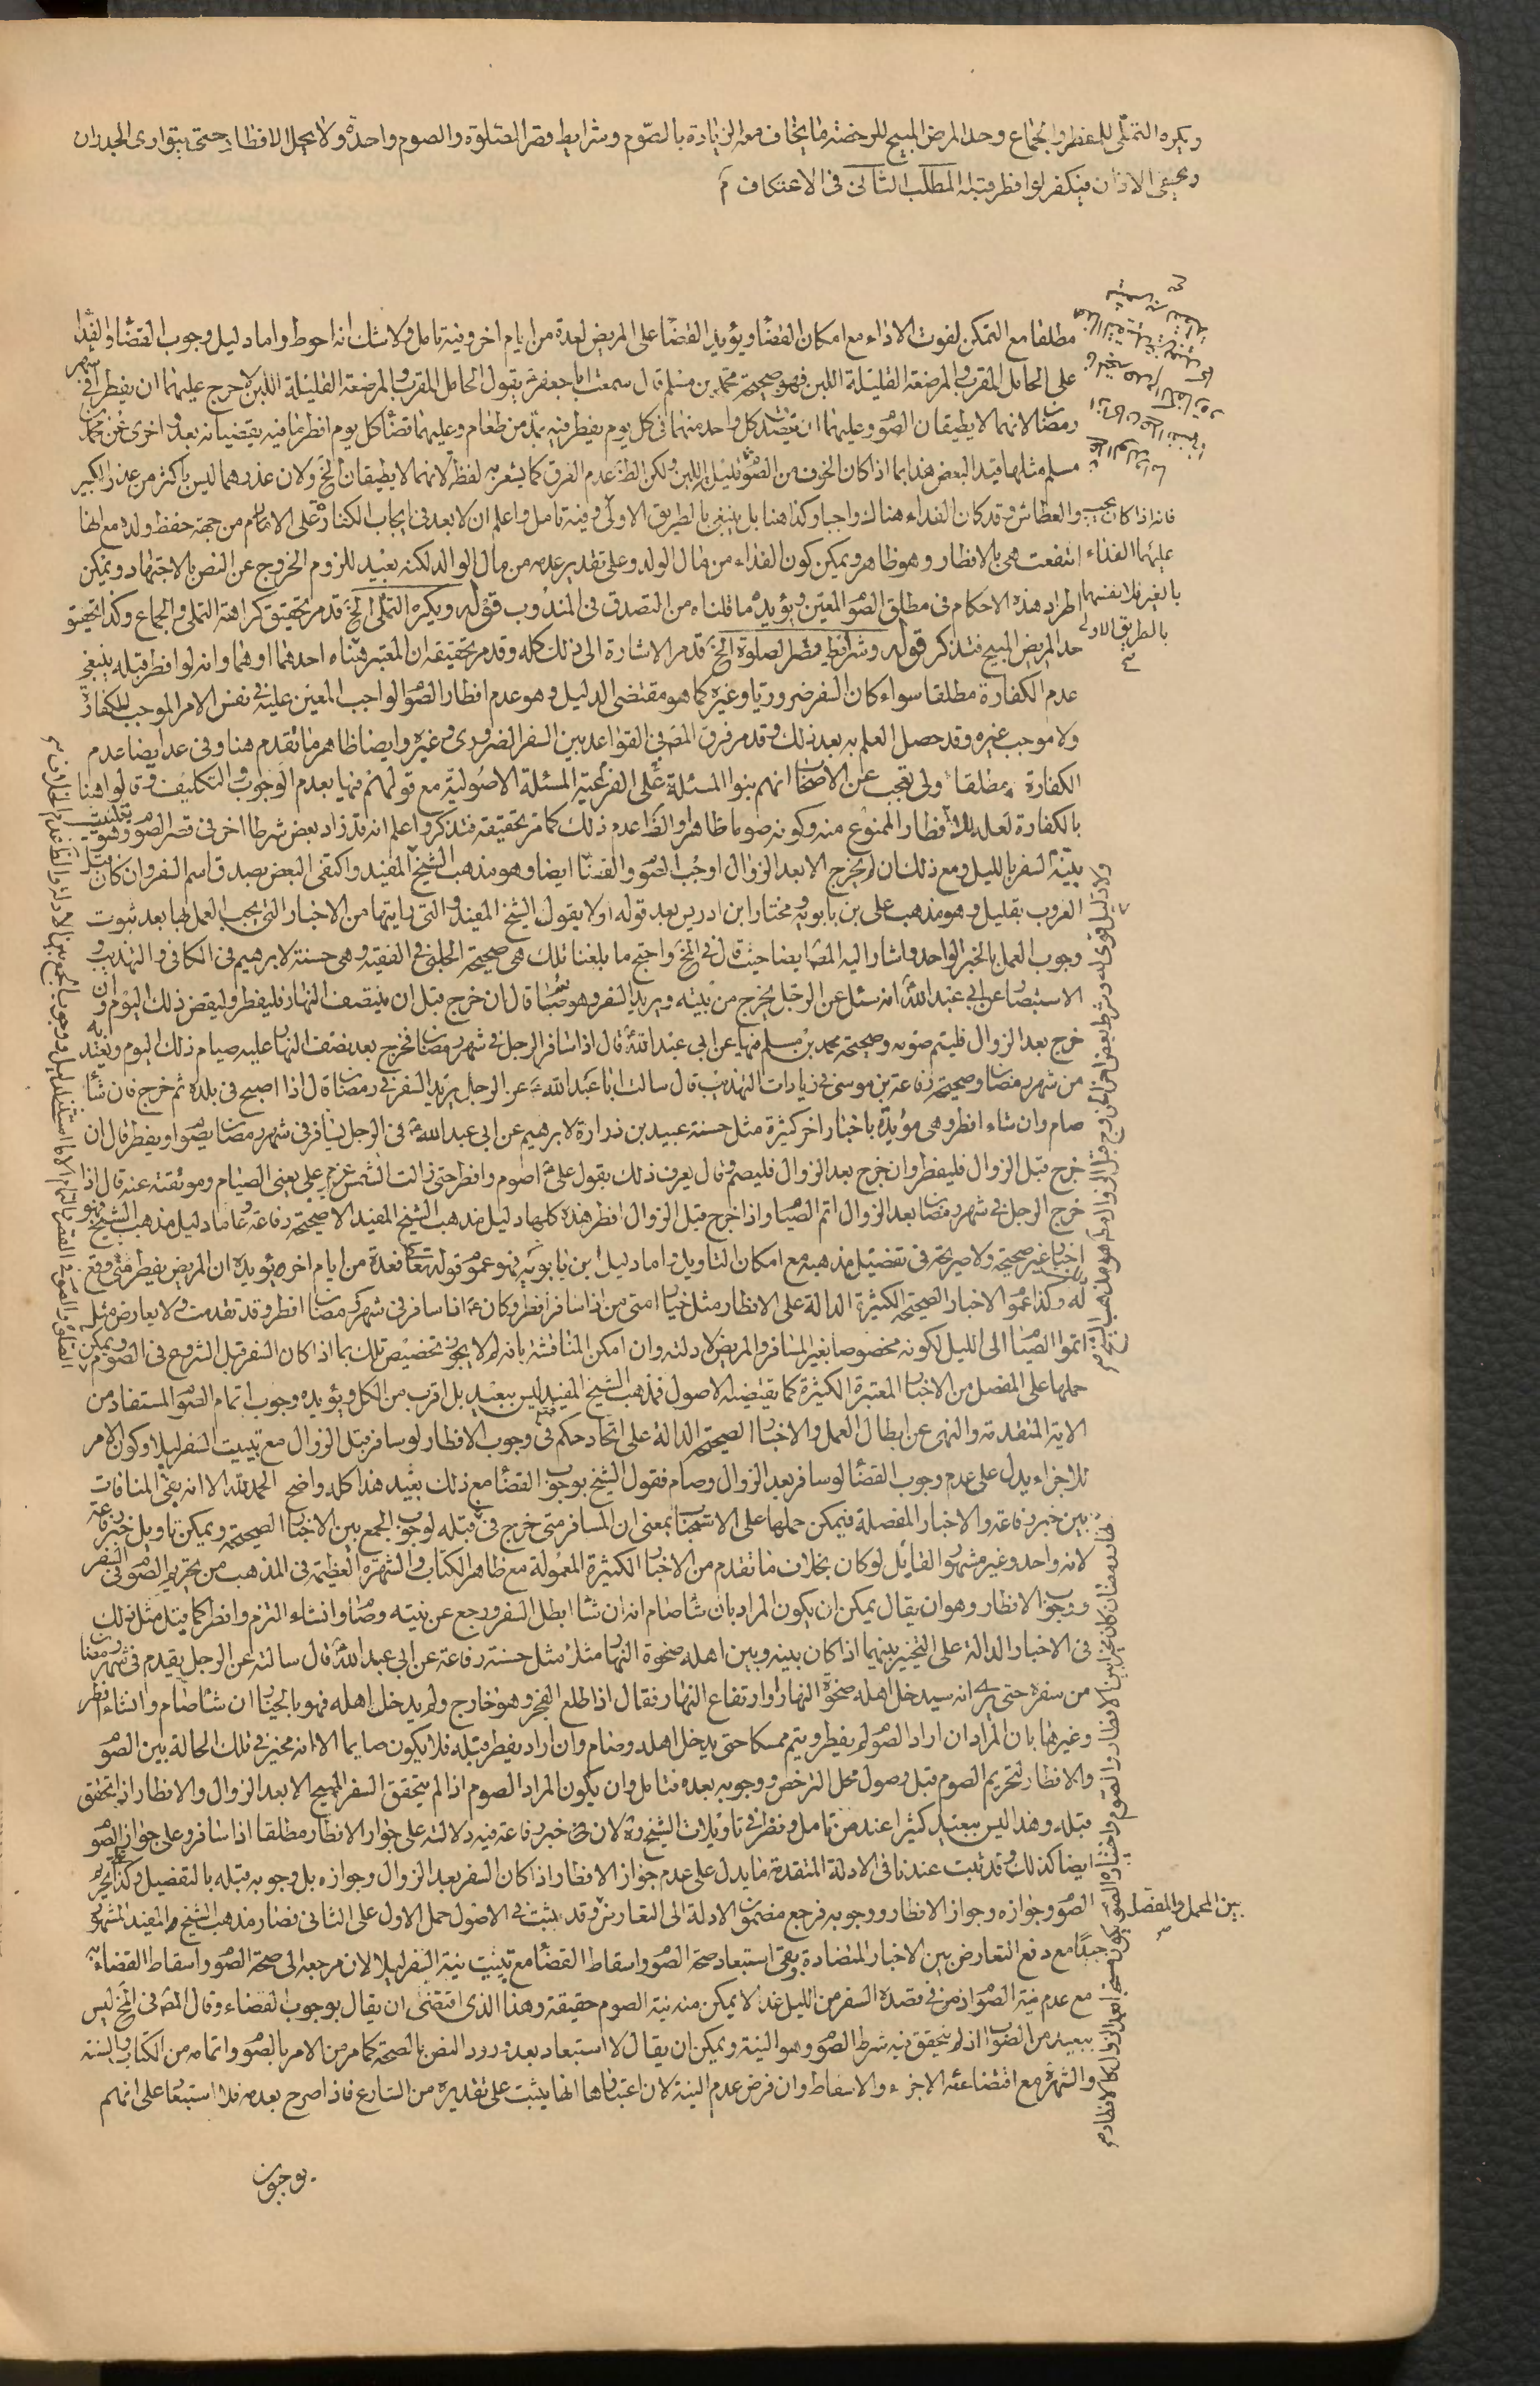 ويكره التملّى للمفطر والجماع وحد المرض المبيح للرخصة ما يخاف معه الزيادة بالصّوم وشرايط قصر الصّلوة والصوم واحدة ولا يحل الافطار حتى يتوارى الجدران
ويخفى الاذان فيكفر لو افطر قبله المطلب الثالث فى الاعتكاف م
مطلقا مع التمكن لفوت الاداء مع امكان القضا ويؤيد القضا على المريض لعدة من ايام اخر وفيه تامل ولا شك انه احوط واما دليل وجوب القضا والفدا
على الحامل المقرب والمرضعة القليلة اللبن فهو صحيحة محمد بن مسلم قال سمعت ابا جعفر ع يقول الحامل المقرب والمرضعة القليلة اللبن لا حرج عليهما ان يفطرا فى شهر
رمضان لانهما لا يطيقان الصوم وعليهما ان يتصدق كل واحد منهما فى كل يوم يفطر فيه بمد من طعام وعليهما قضا كل يوم افطرتا فيه يقضيانه بعد واخرى عن محمد بن
مسلم مثلها قيد البعض هذا بما اذا كان الخوف من الصوم لقليل اللبن ولكن الظ عدم الفرق كما يشعر به لفظ لانهما لا يطيقان الخ ولان عذرهما ليس باكثر من عذر الكبير
والعطاش وقد كان الفداء هناك واجبا وكذا هنا بل ينبغى بالطريق الاولى وفيه تامل واعلم ان لا بعد فى ايجاب الكفارة على الام من جهة حفظ ولده مع انها
انتفعت هى بالافطار وهو ظاهر ويمكن كون الفداء من مال الولد وعلى تقدير عدمه من مال الوالد لكنه بعيد للزوم الخروج عن النص بالاجتهاد ويمكن
اطراد هذه الاحكام فى مطلق الصوم المعين ويؤيده ما قلناه من التصدق فى المندوب قوله ويكره التملى الخ قد مر تحقيق كراهة التملى والجماع وكذا تحقيق
حد المرض المبيح فتذكر قوله وشرائط قصر الصلوة الخ قد مر الاشارة الى ذلك كله وقد مر تحقيقه ان المعتبر خفاء احدهما او هما وانه لو افطر قبله ينبغى
عدم الكفارة مطلقا سواء كان السفر ضروريا وغيره كما هو مقتضى الدليل وهو عدم افطار الصوم الواجب المعين عليه فى نفس الامر الموجب للكفارة
ولا موجب غيره وقد حصل العلم به بعد ذلك وقد مر فرق المص فى القواعد بين السفر الضرورى وغيره وايضا ظاهر ما تقدم هنا وفى عد ايضا عدم
الكفارة مطلقا ولى تعجب عن الاصحاب انهم بنوا المسئلة على الفرعية المسئلة الاصولية مع قولهم فيها بعدم الوجوب والتكليف وقالوا هنا
بالكفارة لعله للافطار الممنوع منه وكونه صوما ظاهرا والظ عدم ذلك كما مر تحقيقه فتذكر واعلم انه قد زاد بعض شرطا اخر فى قصر الصوم وهو تبييت
نيّة السفر بالليل ومع ذلك ان لم يخرج الا بعد الزوال اوجب الصوم والقضا ايضا وهو مذهب الشيخ المفيد واكتفى البعض بصدق اسم السفر وان كان قبل
الغروب بقليل وهو مذهب على بن بابويه ومختار ابن ادريس بعد قوله اولا بقول الشيخ المفيد والتى رايتها من الاخبار التى يجب العمل بها بعد ثبوت
وجوب العمل بالخبر الواحد واشار اليه المص ايضا حيث قال فى المخ واحتج ما بلغنا تلك هى صحيحة الحلبى فى الفقيه وهى حسنة لابرهيم فى الكافى والتهذيب و
الاستبصار عن ابى عبد الله ع انه سئل عن الرجل يخرج من بيته ويريد السفر وهو صائم قال ان خرج قبل ان ينتصف النهار فليفطر وليقض ذلك اليوم وان
خرج بعد الزوال فليتم صومه وصحيحة محمد بن مسلم فيها عن ابى عبد الله ع قال اذا سافر الرجل فى شهر رمضان فخرج بعد نصف النهار عليه صيام ذلك اليوم ويعتد به
من شهر رمضان وصحيحة رفاعة بن موسى فى زيادات التهذيب قال سالت ابا عبد الله ع عن الرجل يريد السفر فى رمضان قال اذا اصبح فى بلده ثم خرج فان شا
صام وان شاء افطر وهى مؤيدة باخبار اخر كثيرة مثل حسنة عبيد بن زرارة لابرهيم عن ابى عبد الله ع فى الرجل يسافر فى شهر رمضان يصوم او يفطر قال ان
خرج قبل الزوال فليفطر وان خرج بعد الزوال فليصم وقال يعرف ذلك بقول على ع اصوم وافطر حتى زالت الشمس عزم على يعنى الصيام وموثقته عنه قال اذا
خرج الرجل فى شهر رمضان بعد الزوال اتم الصيام واذا خرج قبل الزوال افطر هذه كلها دليل مذهب الشيخ المفيد الا صحيحة رفاعة واما دليل مذهب الشيخ فهو
اخبار غير صحيحة ولا صريحة فى تفضيل مذهبه مع امكان التاويل واما دليل ابن بابويه فهو عموم قوله تعا فعدة من ايام اخر يؤيده ان المريض يفطر متى وقع
له وكذا عموم الاخبار الصحيحة الكثيرة الدالة على الافطار مثل خيار امتى من اذا سافر افطر وكان ع اذا سافر فى شهر رمضان افطر وقد تقدمت ولا يعارض مثل
اتموا الصيام الى الليل لكونه مخصوصا بغير المسافر والمريض لادلته وان امكن المناقشة بانه لم لا يجوز تخصيص تلك بما اذا كان السفر قبل الشروع فى الصوم ويمكن
حملها على المفصل من الاخبار المعتبرة الكثيرة كما يقتضيه الاصول فمذهب الشيخ المفيد ليس ببعيد بل اقرب من الكل ويؤيده وجوب اتمام الصوم المستفاد من
الاية المتقدمة والنهى عن ابطال العمل والاخبار الصحيحة الدالة على اتحاد حكم فى وجوب الافطار لو سافر قبل الزوال مع تبييت السفر ليلا وكون الامر
للاجزاء يدل على عدم وجوب القضا لو سافر بعد الزوال وصام فقول الشيخ بوجوب القضا مع ذلك بعيد هذا كله واضح الحمد لله الا انه بقى المنافات
بين خبر رفاعة والاخبار المفصلة فيمكن حملها على الاستحباب بمعنى ان المسافر متى خرج فى قبله لوجوب الجمع بين الاخبار الصحيحة ويمكن تاويل خبر رفاعة
لانه واحد وغير مشهور القائل لو كان بخلاف ما تقدم من الاخبار الكثيرة المعمولة مع ظاهر الكتاب والشهرة العظيمة فى المذهب من تحريم الصوم فى السفر
ووجوب الافطار وهو ان يقال يمكن ان يكون المراد بان شا صام انه ان شا ابطل السفر ورجع عن نيته وصام وان شاء التزم وافطر كما قيل مثل ذلك
فى الاخبار الدالة على التخيير بينهما اذا كان بينه وبين اهله ضحوة النهار مثلا مثل حسنة رفاعة عن ابى عبد الله ع قال سالته عن الرجل يقدم فى شهر رمضان
من سفره حتى يرى انه سيدخل اهله ضحوة النهار او ارتفاع النهار فقال اذا طلع الفجر وهو خارج ولم يدخل اهله فهو بالخيار ان شا صام وان شاء افطر
وغيرها بان المراد ان اراد الصوم لم يفطر ويتم ممسكا حتى يدخل اهله وصام وان اراد يفطر قبله فلا يكون صايما الا انه مخير فى تلك الحالة بين الصوم
والافطار لتحريم الصوم قبل وصول محل الترخص ووجوبه بعده فتامل وان يكون المراد الصوم اذا لم يتحقق السفر المبيح الا بعد الزوال والافطار اذا تحقق
قبله وهذا ليس ببعيد كثيرا عند من تامل ونظر فى تاويلات الشيخ ره لان فى خبر رفاعة فيه دلالة على جواز الافطار مطلقا اذا سافر وعلى جواز الصوم
ايضا كذلك وقد ثبت عندنا فى الادلة المتقدمة ما يدل على عدم جواز الافطار اذا كان السفر بعد الزوال وجوازه بل وجوبه قبله بالتفصيل وكذا تحريم
الصوم وجوازه وجواز الافطار ووجوبه فرجع مضمون الادلة الى التعارض وقد ثبت فى الاصول حمل الاول على الثانى فصار مذهب الشيخ المفيد المشهور
جيدًا مع دفع التعارض بين الاخبار المتضادة وبقى استبعاد صحة الصوم واسقاط القضا مع تبييت نية السفر ليلا لان مرجعه الى صحة الصوم واسقاط القضاء به
مع عدم نية الصوم اذ من فى قصده السفر من الليل غدا لا يمكن منه نية الصوم حقيقة وهذا الذى اقتضى ان يقال بوجوب القضاء وقال المص فى المخ ليس
ببعيد من الصواب اذ لم يتحقق فيه شرط الصوم وهو النية ويمكن ان يقال لا استبعاد بعد ورود النص بالصحة كما مر من الامر بالصوم واتمامه من الكتاب والسنة
والشهرة مع اقتضائه الاجزاء والاسقاط وان فرض عدم النية لان اعتبارها انما يثبت على تقديره من الشارع فاذا صرح بعدمه فلا استبعاد على انهم
يوجبون
فانه اذا كان يجب
عليهما الفداء
بالغير فلانفسهما
بالطريق الاولى
بين المجمل والمفصل